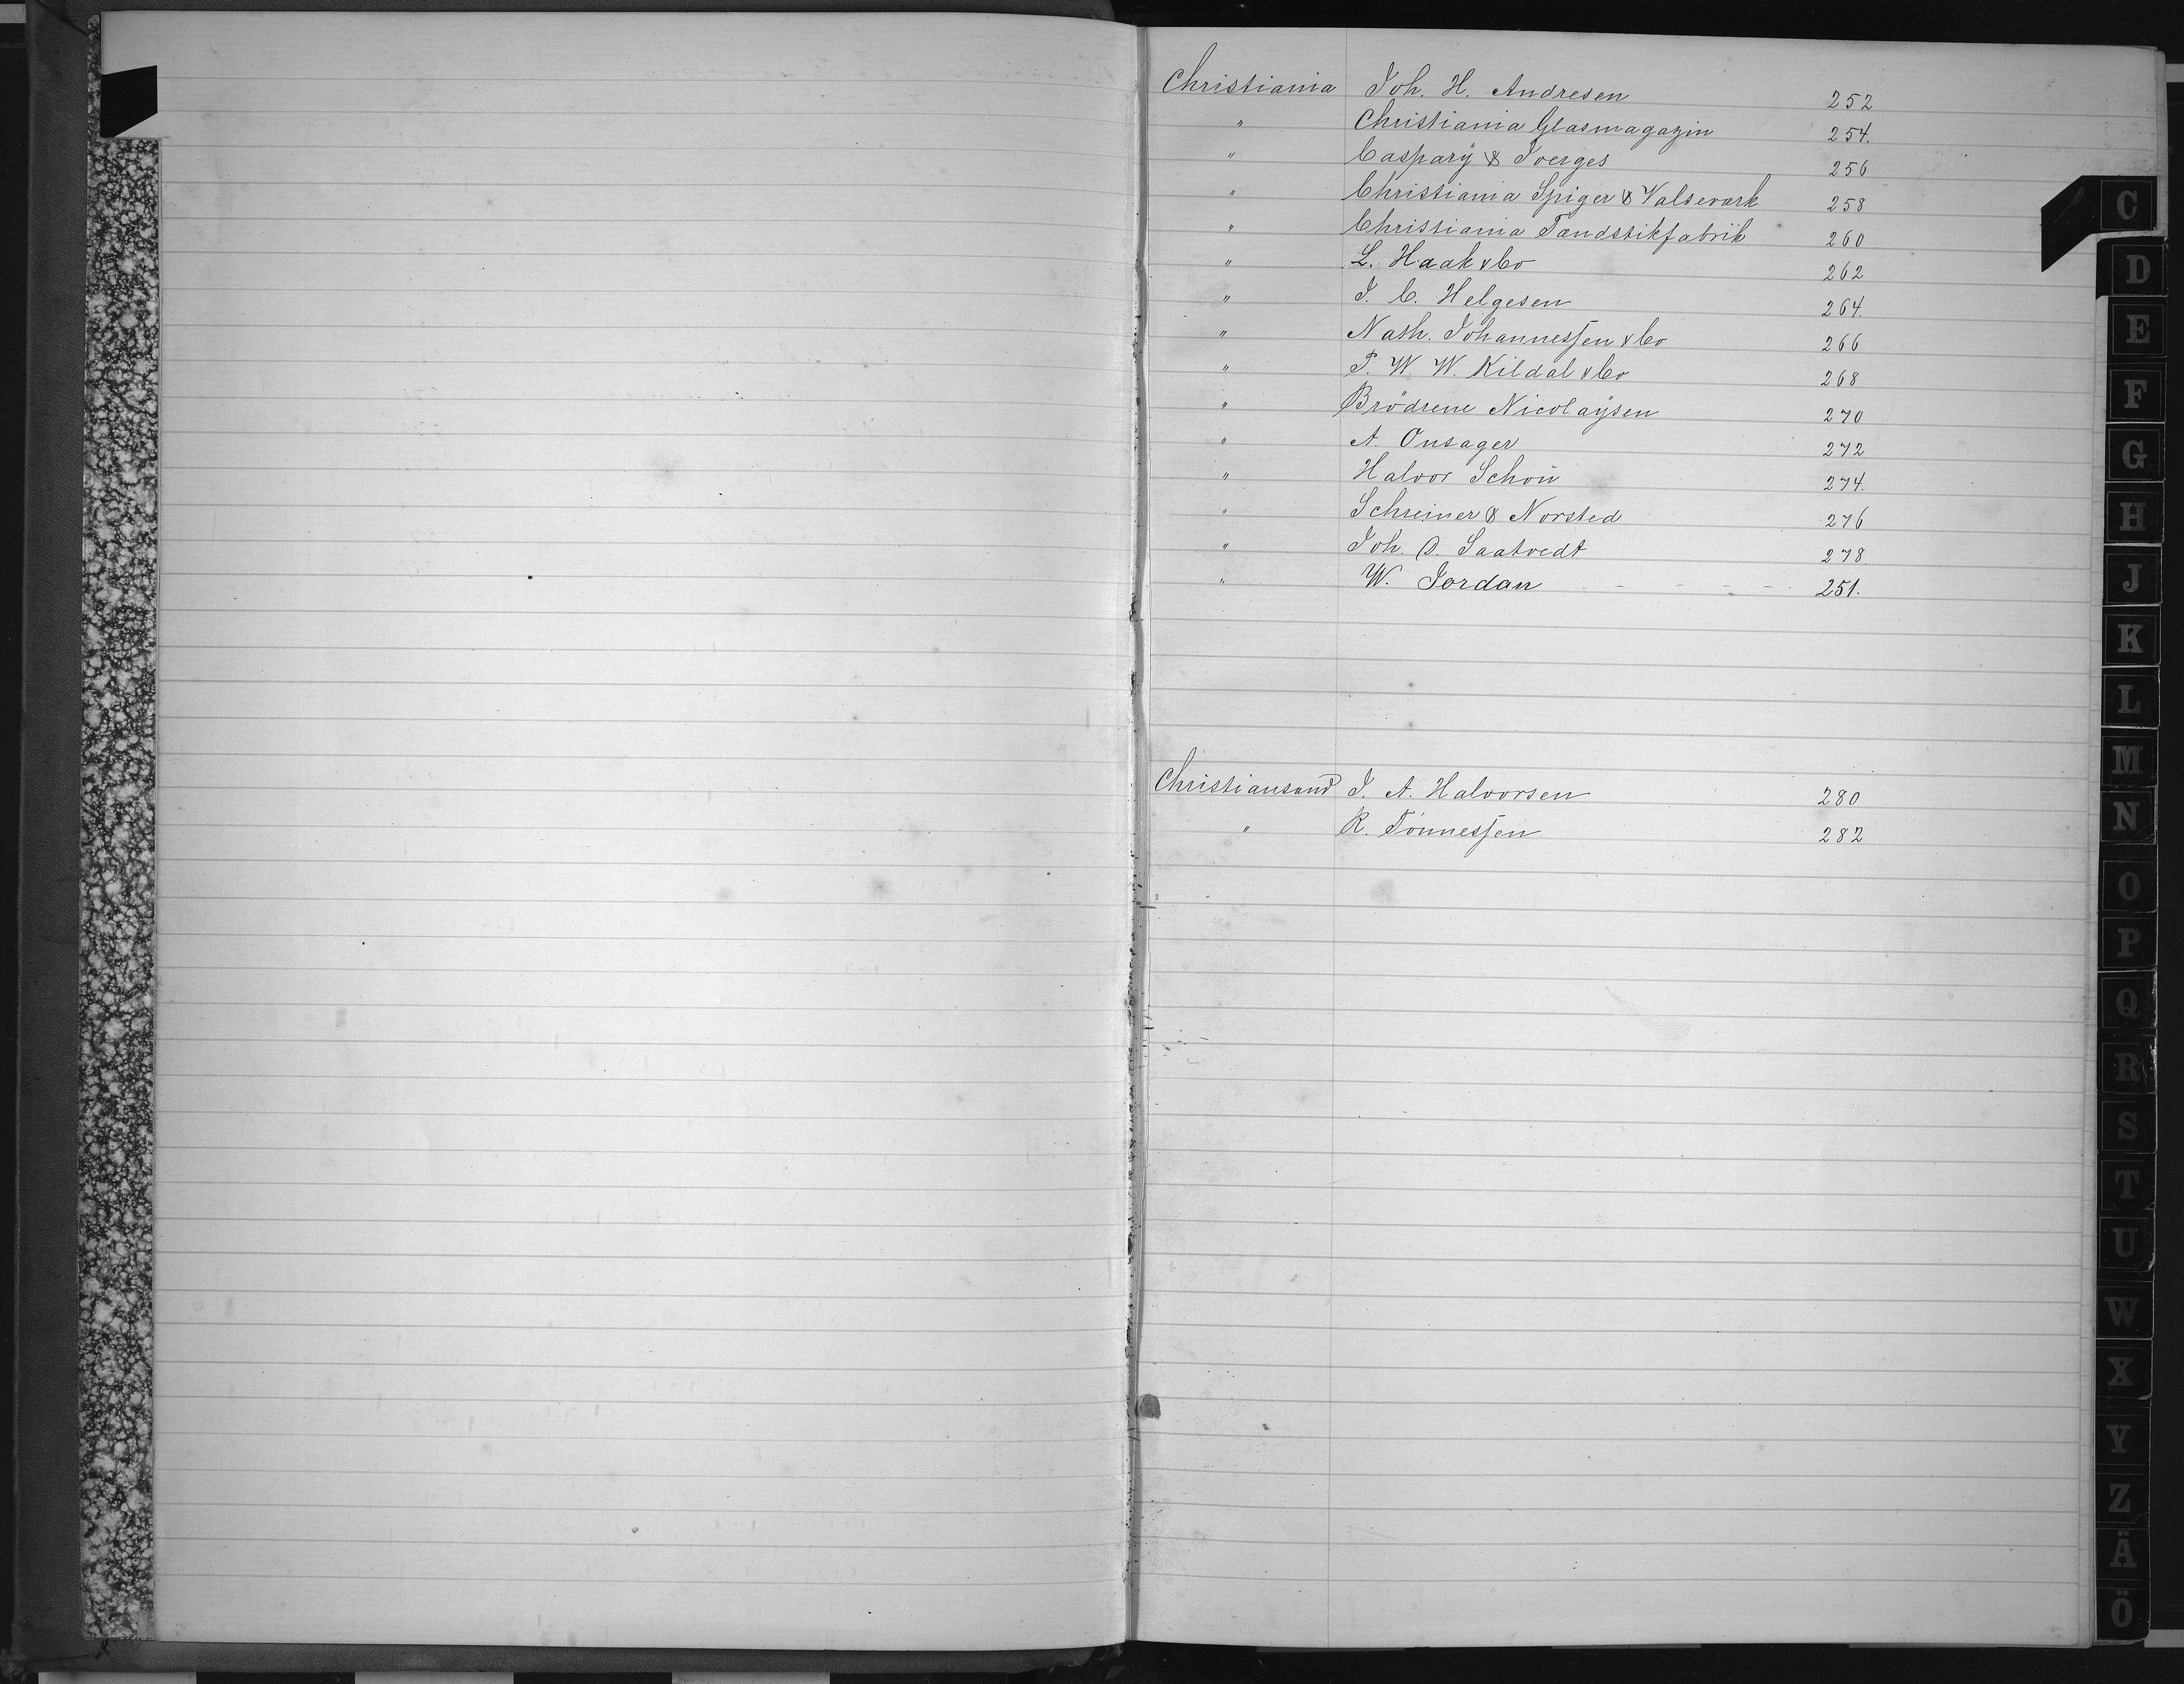 Christiania Joh. H. Andresen 252
" Christiania Glasmagazin 254.
" Caspary & Joerges 256
" Christiania Spiger & Valseværk 258
" Christiania Tændstikfabrik 260
" L. Haak & Co 262
" J. C. Helgesen 264.
" Nath. Johannessen & Co 266
" P. W. W. Kildal & Co 268
" Brödrene Nicolaysen 270
" A. Onsager 272
" Halvor Schou 274.
" Schreiner & Norsted 276
" Joh. O. Saatvedt 278.
" W. Jordan 251.
Christiansund J. A. Halvorsen 280
" R. Tönnessen 282
C
D
E
F
G
H
J
K
L
M
N
O
P
Q
R
S
T
U
W
X
Y
Z
Ä
Ö